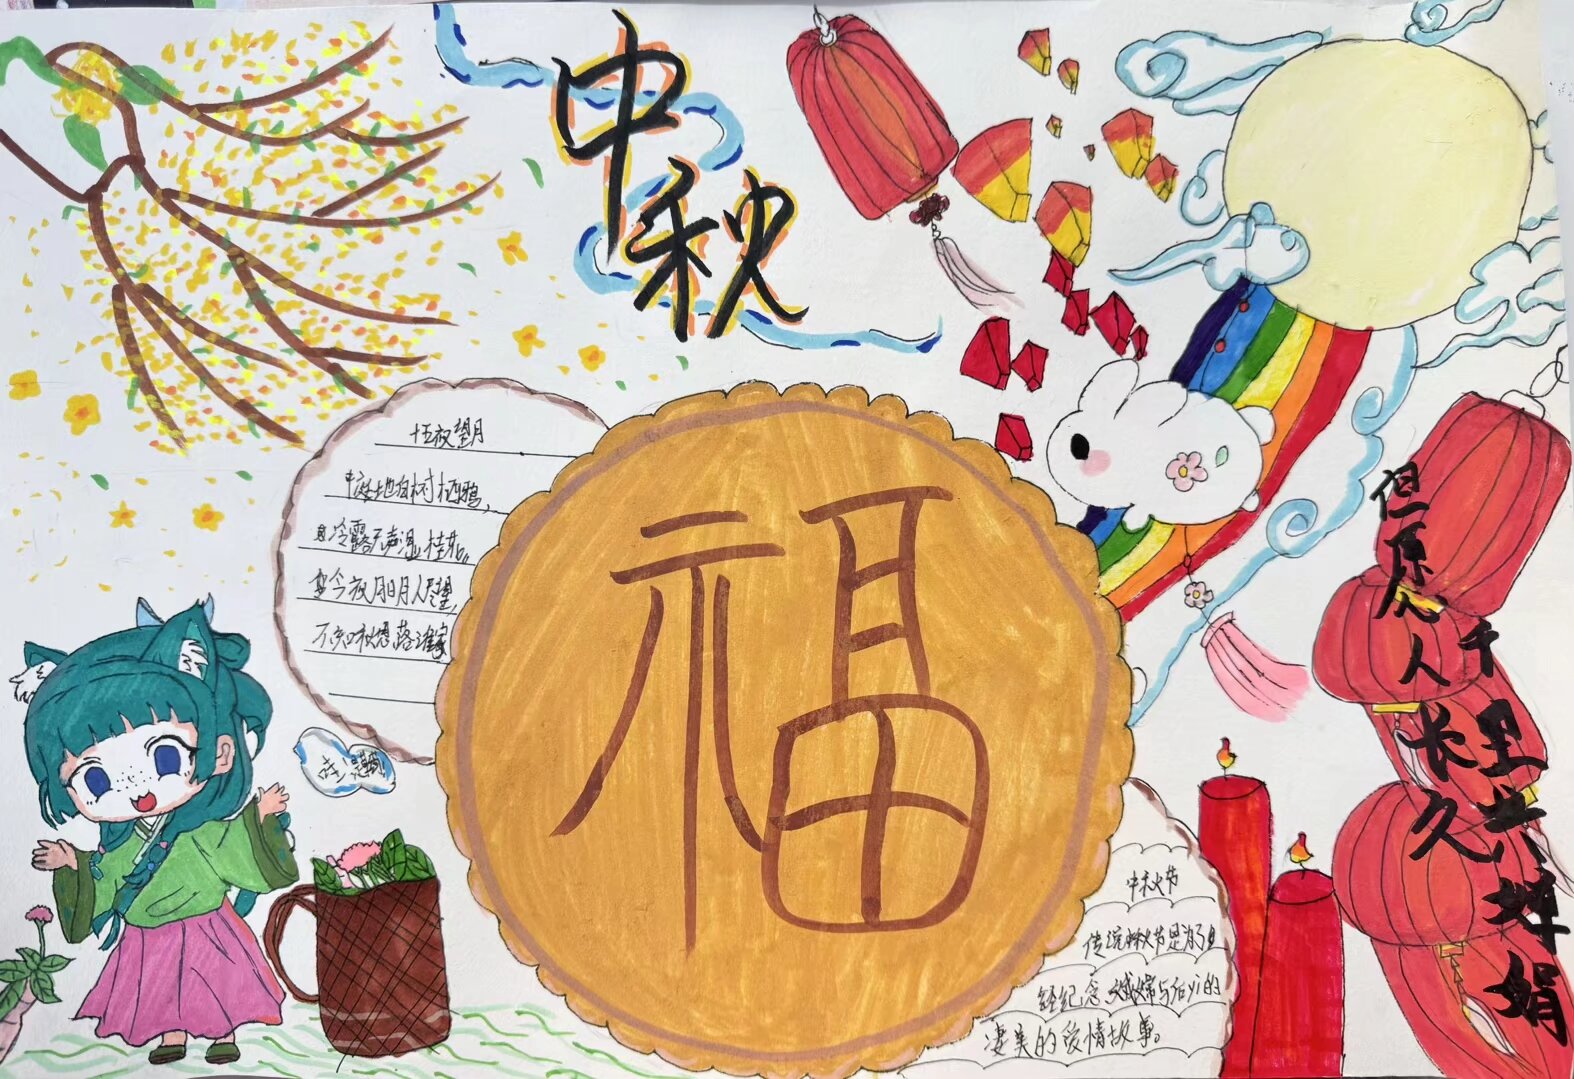 中秋
十五夜望月
中庭地白树栖鸦，
冷露无声湿桂花。
今夜月明人尽望，
不知秋思落谁家
福
但愿人长久
千里共婵娟
中秋节
传说中秋节是为了
纪念嫦娥与后yi的
凄美的爱情故事。